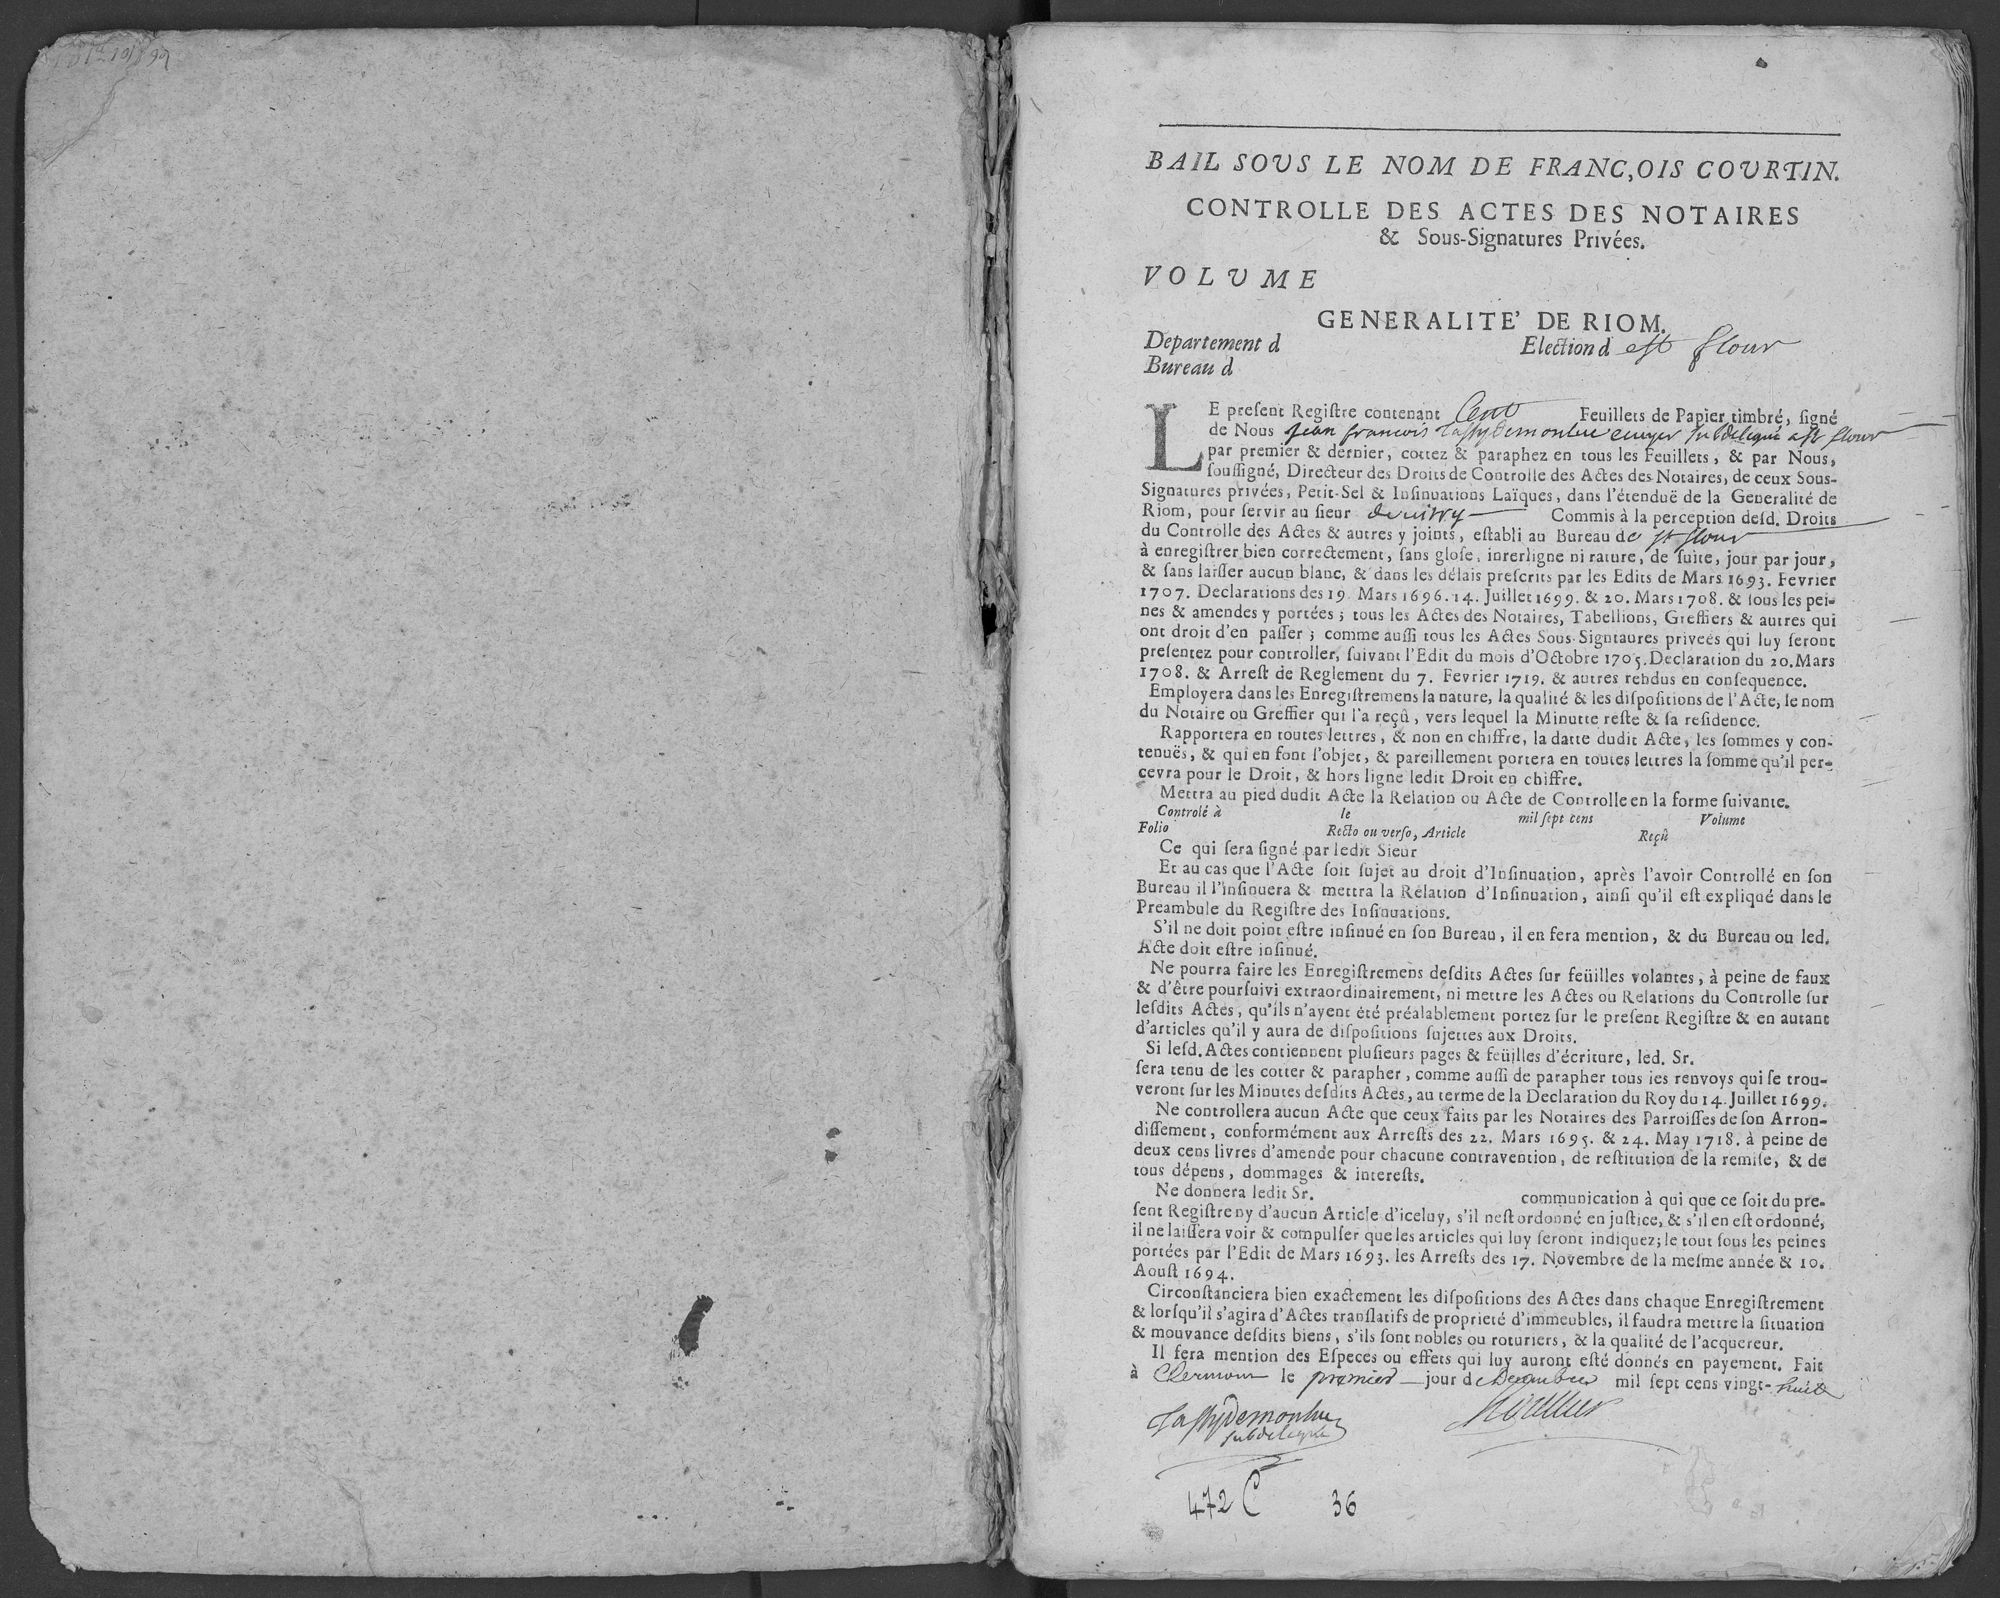 BAIL SOUS LE NOM DE FRANC,OIS COURTIN.
CONTROLLE DES ACTES DES NOTAIRES
& Sous-Signatures Privées.
VOLUME
GENERALITE' DE RIOM.
Departement d Election d e St flour
Bureau d
LE present Registre contenant Cent Feuillets de Papier timbré, signé
de Nous Jean francois Taffydemontue ecuyer subdelegué a St flour
par premier & dernier, cottez & paraphez en tous les Feuillets, & par Nous,
soussigné, Directeur des Droits de Controlle des Actes des Notaires, de ceux Sous-
Signatures privées, Petit-Sel & Insinuations Laïques, dans l'étenduë de la Generalité de
Riom, pour servir au sieur Commis à la perception desd. Droits
du Controlle des Actes & autres y joints, establi au Bureau de St flour
à enregistrer bien correctement, sans glose, inrerligne ni rature, de suite, jour par jour,
& sans laisser aucun blanc, & dans les délais prescrits par les Edits de Mars 1693. Fevrier
1707. Declarations des 19. Mars 1696. 14. Juillet 1699. & 20. Mars 1708. & sous les pei-
nes & amendes y portées ; tous les Actes des Notaires, Tabellions, Greffiers & autres qui
ont droit d'en passer ; comme aussi tous les Actes Sous-Signtaures priveés qui luy seront
presentez pour controller, suivant l'Edit du mois d'Octobre 1705. Declaration du 20. Mars
1708. & Arrest de Reglement du 7. Fevrier 1719. & autres rendus en consequence.
Employera dans les Enregistremens la nature, la qualité & les dispositions de l'Acte, le nom
du Notaire ou Greffier qui l'a reçû, vers lequel la Minutte reste & sa residence.
Rapportera en toutes lettres, & non en chiffre, la datte dudit Acte, les sommes y con-
tenuës, & qui en font l'objet, & pareillement portera en toutes lettres la somme qu'il per-
cevra pour le Droit, & hors ligne ledit Droit en chiffre.
Mettra au pied dudit Acte la Relation ou Acte de Controlle en la forme suivante.
Controlé à le mil sept cens Volume
Folio Recto ou verso, Article Reçû
Ce qui sera signé par ledit Sieur
Et au cas que l'Acte soit sujet au droit d'Insinuation, après l'avoir Controllé en son
Bureau il l'insinuera & mettra la Relation d'Insinuation, ainsi qu'il est expliqué dans le
Preambule du Registre des Insinuations.
S'il ne doit point estre insinué en son Bureau, il en fera mention, & du Bureau ou led.
Acte doit estre insinué.
Ne pourra faire les Enregistremens desdits Actes sur feüilles volantes, à peine de faux
& d'être poursuivi extraordinairement, ni mettre les Actes ou Relations du Controlle sur
lesdits Actes, qu'ils n'ayent été préalablement portez sur le present Registre & en autant
d'articles qu'il y aura de dispositions sujettes aux Droits.
Si lesd. Actes contiennent plusieurs pages & feüilles d'écriture, led. Sr.
sera tenu de les cotter & parapher, comme aussi de parapher tous les renvoys qui se trou-
veront sur les Minutes desdits Actes, au terme de la Declaration du Roy du 14. Juillet 1699.
Ne controllera aucun Acte que ceux faits par les Notaires des Parroisses de son Arron-
dissement, conformément aux Arrests des 22. Mars 1695. & 24. May 1718. à peine de
deux cens livres d'amende pour chacune contravention, de restitution de la remise, & de
tous dépens, dommages & interests.
Ne donnera ledit Sr. communication à qui que ce soit du pre-
sent Registre ny d'aucun Article d'iceluy, s'il nest ordonné en justice, & s'il en est ordonné,
il ne laissera voir & compulser que les articles qui luy seront indiquez ; le tout sous les peines
portées par l'Edit de Mars 1693. les Arrests des 17. Novembre de la mesme année & 10.
Aoust 1694.
Circonstanciera bien exactement les dispositions des Actes dans chaque Enregistrement
& lorsqu'il s'agira d'Actes translatifs de proprieté d'immeubles, il faudra mettre la situation
& mouvance desdits biens, s'ils sont nobles ou roturiers, & la qualité de l'acquereur.
Il fera mention des Especes ou effets qui luy auront esté donnés en payement. Fait
à Clermont le premier jour de Decembre mil sept cens vingt-huit
Taffydemontue
subdelegué
472 C 36